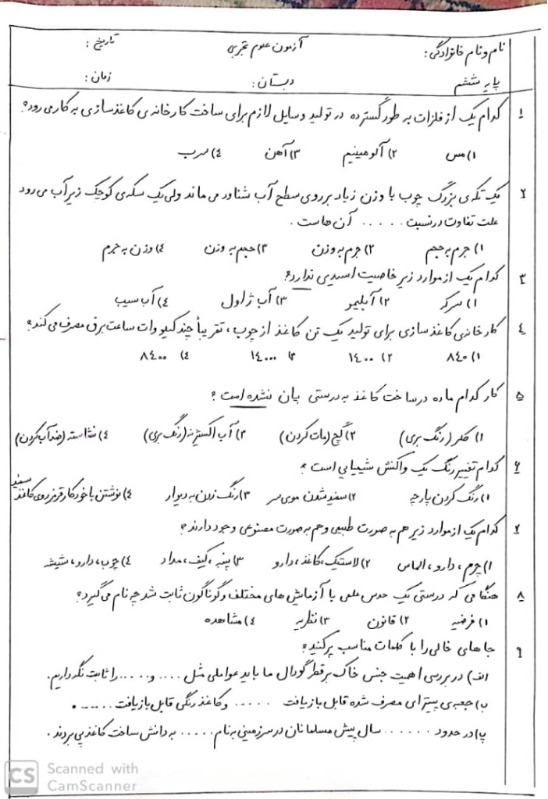 نام و نام خانوادگی: آزمون علوم تجربی تاریخ:
پایه ششم دبستان: زمان:
۱ کدام یک از فلزات به طور گسترده در تولید وسایل لازم برای ساخت کارخانه ی کاغذسازی به کار می رود؟
۱) مس ۲) آلومینیم ۳) آهن ۴) سرب
۲ یک تکه ی بزرگ چوب با وزن زیاد بر روی سطح آب شناور می ماند ولی یک سکه ی کوچک زیر آب می رود
علت تفاوت در نسبت ..... آن هاست.
۱) جرم به حجم ۲) جرم به وزن ۳) حجم به وزن ۴) وزن به جرم
۳ کدام یک از موارد زیر خاصیت اسیدی ندارد؟
۱) سرکه ۲) آبلیمو ۳) آب ژاول ۴) آب سیب
۴ کارخانه ی کاغذسازی برای تولید یک تن کاغذ از چوب، تقریباً چند کیلو وات ساعت برق مصرف می کند؟
۱) ۸۴۰ ۲) ۱۴۰۰ ۳) ۱۴۰۰۰ ۴) ۸۴۰۰
۵ کار کدام ماده در ساخت کاغذ به درستی بیان نشده است؟
۱) کلر (رنگ بری) ۲) گچ (مات کردن) ۳) آب اکسیژنه (رنگ بری) ۴) نشاسته (ضد آب کردن)
۶ کدام تغییر رنگ یک واکنش شیمیایی است؟
۱) رنگ کردن پارچه ۲) سفید شدن موی سر ۳) رنگ زدن به دیوار ۴) نوشتن با خودکار قرمز روی کاغذ سفید
۷ کدام یک از موارد زیر هم به صورت طبیعی و هم به صورت مصنوعی وجود دارند؟
۱) چرم، دارو، الماس ۲) لاستیک، کاغذ، دارو ۳) پنبه، کیف، مداد ۴) چوب، دارو، شیشه
۸ هنگامی که درستی یک حدس علمی با آزمایش های مختلف و گوناگون ثابت شد چه نام می گیرد؟
۱) فرضیه ۲) قانون ۳) نظریه ۴) مشاهده
۹ جاهای خالی را با کلمات مناسب پر کنید؟
الف) در بررسی اهمیت جنس خاک بر قطر گودال ما باید عواملی مثل .... و .... را ثابت نگه داریم.
ب) جعبه ی پیتزای مصرف شده قابل بازیافت ..... و کاغذ رنگی قابل بازیافت .......
پ) در حدود ...... سال پیش مسلمانان در سرزمینی به نام ..... به دانش ساخت کاغذ پی بردند.
CS Scanned with
CamScanner